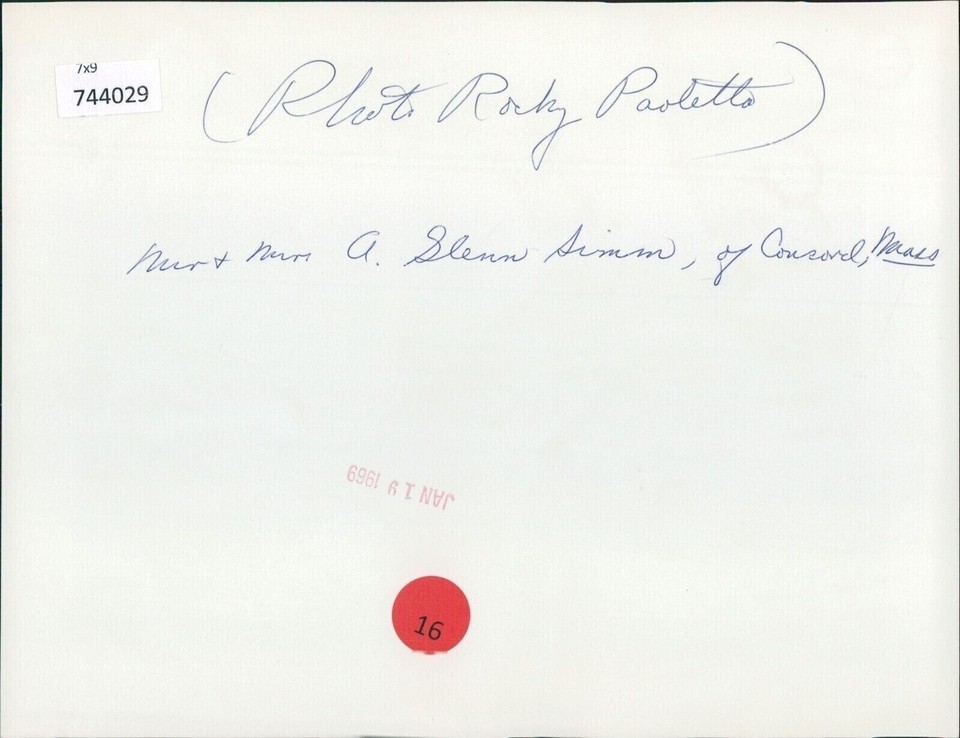 7x9
744029
(Photo Rocky Paoletta)
Mr & Mrs A. Glenn Simm, of Concord, Mass
JAN 19 1969
16